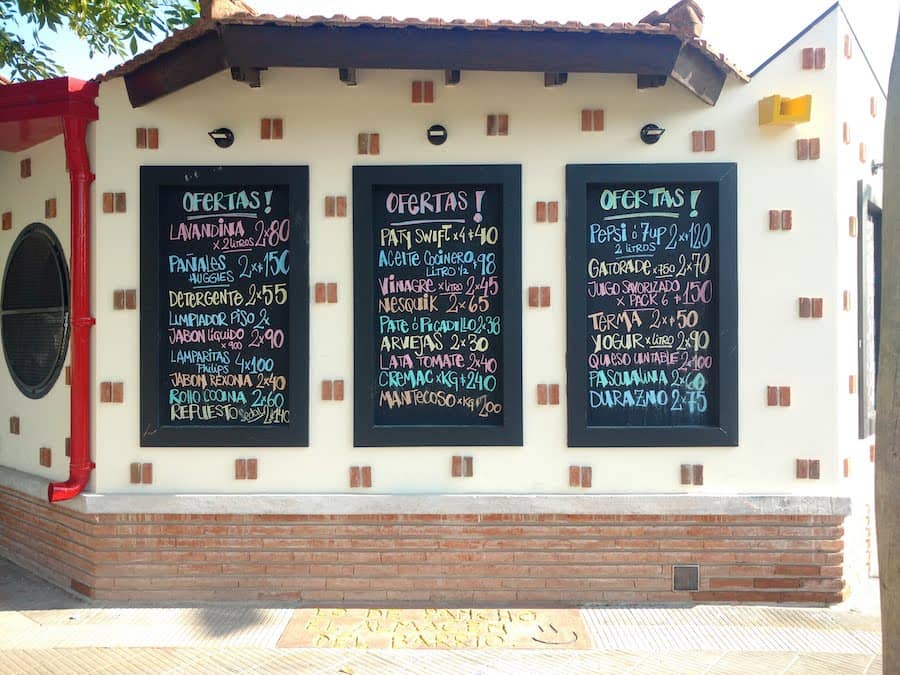 OFERTAS!
LAVANDINA 2x80
x 2 LITROS
PAÑALES 2x$150
HUGGIES
DETERGENTE 2x55
LIMPIADOR PISO 2x
JABON LÍQUIDO 2x90
x 900
LAMPARITAS 4x100
Philips
JABON REXONA 2x40
ROLLO COCINA 2x60
REFUESTO Sedal 2x140
OFERTAS!
PATY SWIFT x4 $40
ACEITE COCINERO $98
LITRO 1/2
VINAGRE x LITRO 2x45
NESQUIK 2x65
PATE Ó PICADILLO 2x38
ARVEJAS 2x30
LATA TOMATE 2x40
CREMAC x KG $240
MANTECOSO x KG 200
OFERTAS!
PEPSI Ó 7UP 2x120
2 LITROS
GATORADE x 750 2x70
JUGO SAVORIZADO $150
x PACK 6
TERMA 2x$50
YOGUR x LITRO 2x90
QUESO UNTABLE 2x100
PASCUALINA 2x60
DURAZNO 2x75
LO DE PANCHO
EL ALMACEN
DEL BARRIO